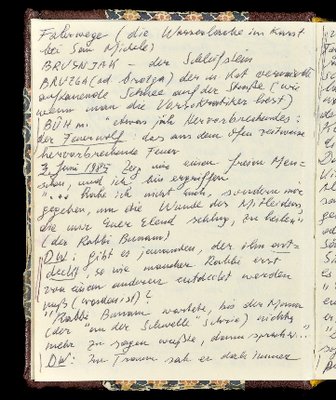 Fahrwege (die Wasserlache im Karst
bei San Michele)
BRUSNJAK – der Schleifstein
BRUZGA (ad brozga) der m. Kot vermischte
auftauende Schnee auf der Straße ("wie
wenn man die Vorsokratiker liest)
BÜHm. "etwas jäh Hervorbrechendes:
der Feuerwolf: das aus dem Ofen zeitweise
hervorbrechende Feuer
3. Juni 1987 Zeig mir einen freien Men-
schen, und ich bin ergriffen
"... habe ich nicht euch, sondern mir
gegeben, um die Wunde des Mitleidens,
die mir Euer Elend schlug, zu heilen"
(der Rabbi Bunam)
DW: gibt es jemanden, der ihn ent-
deckt, so wie mancher Rabbi erst
von einem anderen entdeckt werden
muß (worden ist)?
"Rabbi Bunam wartete, bis der Mann
(der "an der Schwelle" schrie) nichts
mehr zu sagen wußte, dann sprach er..."
DW: Im Traum sah er doch immer